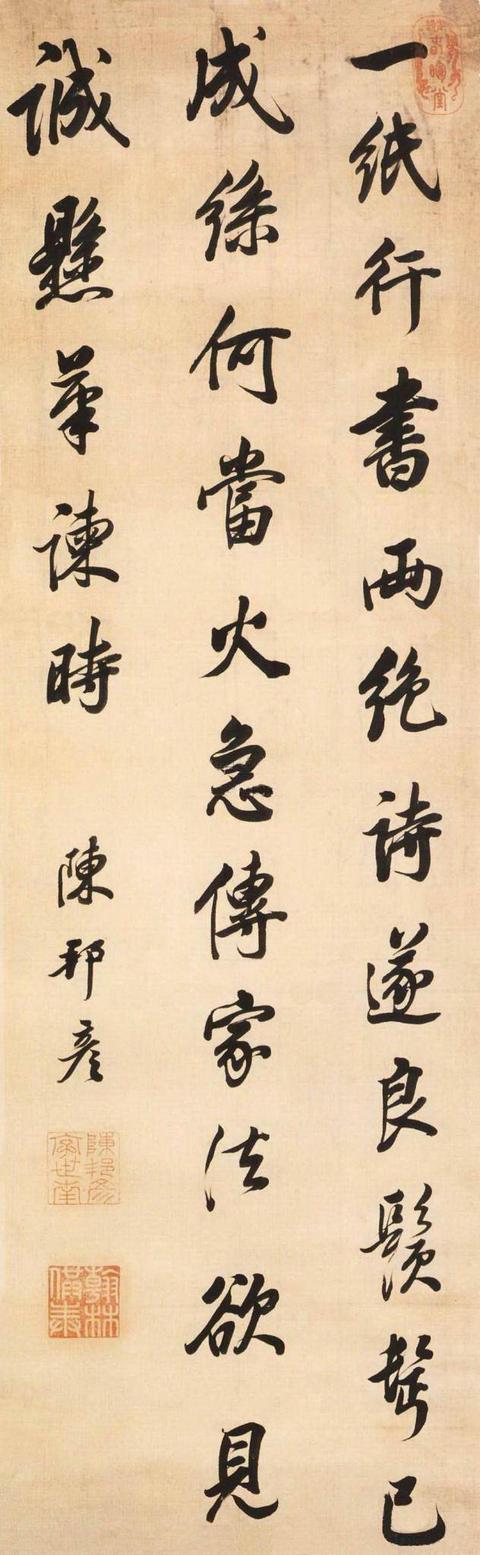 一紙行書兩絕詩遂良鬚鬢已
成絲何當火急傳家法欲見
誠懸筆諫時
陳邦彥
陳邦彥字世南
翰林